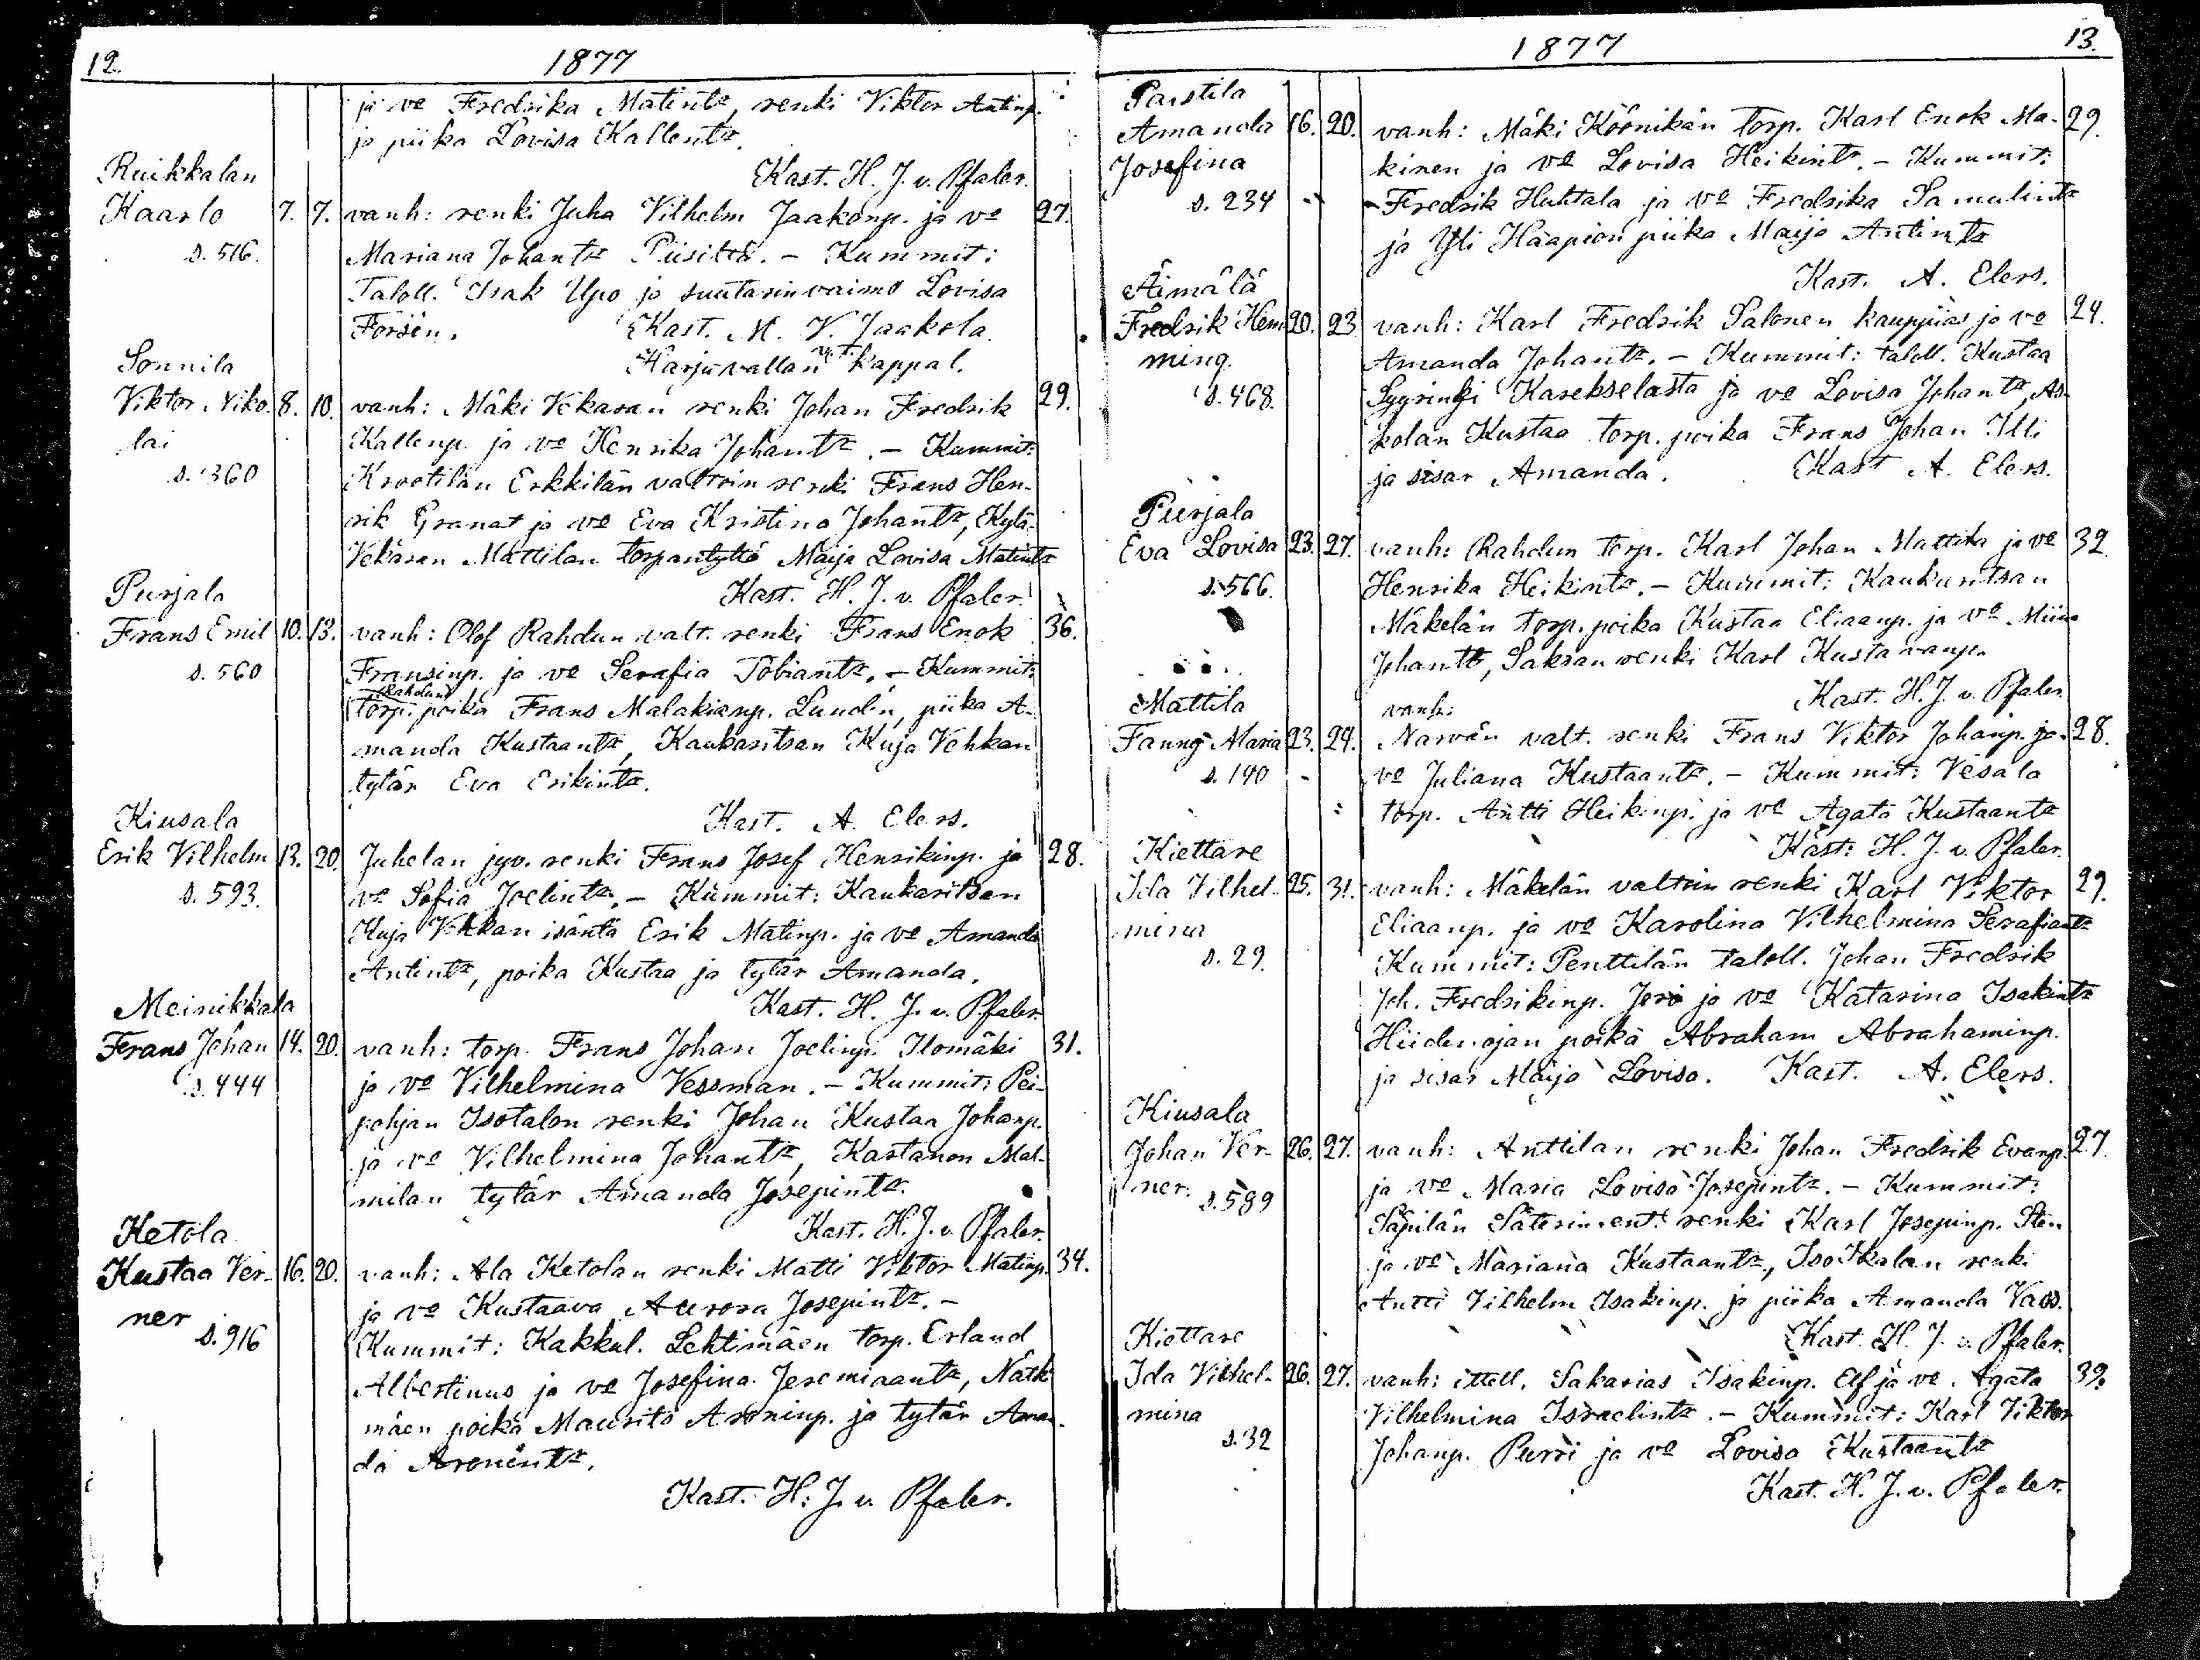 12.
1877
ja ve Fredrika Matintr, renki Viktor Antinp.
ja piika Lovisa Kallentr.
Kast. H. J. v. Pfaler.
Ruikkalan
Kaarlo 7. 7. vanh: renki Juha Vilhelm Jaakonp. ja ve 27.
s. 516. Mariana Johantr Piisiltä. – Kummit:
Taloll. Isak Upo ja suutarin vaimo Lovisa
Forsén. Kast. M. V. Jaakola.
Harjuvallan v.t. kappal.
Sonnila
Viktor Niko- 8. 10. vanh: Mäki Vekaran renki Johan Fredrik 29.
lai Kallenp. ja ve Henrika Johantr. – Kummit:
s. 360 Krootilan Erkkilän valtoin renki Frans Hen-
rik Granat ja ve Eva Kristina Johantr, Kylä-
Vekaran Mattilan torpantyttö Maija Lovisa Matintr
Kast. H. J. v. Pfaler.
Purjala
Frans Emil 10. 13. vanh: Olof Rahdun valt. renki Frans Enok 36.
s. 560 Fransinp. ja ve Serafia Tobiantr. – Kummit:
Rahdun
torp. poika Frans Malakianp. Lundén, piika A-
manda Kustaantr, Kaukaritsan Kuja Vehkan
tytär Eva Erikintr.
Kast. A. Elers.
Kiusala
Erik Vilhelm 13. 20. Juhelan jyv. renki Frans Josef Henrikinp. ja 28.
s. 593. ve Sofia Joelintr. – Kummit: Kaukaritsan
Kuja Vehkan isäntä Erik Matinp. ja ve Amanda
Antintr, poika Kustaa ja tytär Amanda.
Kast. H. J. v. Pfaler.
Meinikkala
Frans Johan 14. 20. vanh: torp. Frans Johan Joelinp. Ilomäki 31.
s. 444 ja ve Vilhelmina Vessman. – Kummit: Pei-
pohjan Isotalon renki Johan Kustaa Johanp.
ja ve Vilhelmina Johantr, Kastanon Mal-
milan tytär Amanda Josepintr.
Kast. H. J. v. Pfaler.
Ketola
Kustaa Ver- 16. 20. vanh: Ala Ketolan renki Matti Viktor Matinp. 34.
ner ja ve Kustaava Aurora Josepintr. –
s. 916 Kummit: Kakkul. Lehtimäen torp. Erland
Albertinus ja ve Josefina Jeremiaantr, Nätk-
mäen poika Maurits Aroninp. ja tytär Aman-
da Aronintr.
Kast. H. J. v. Pfaler.
1877
13.
Paistila
Amanda 16. 20. vanh: Mäki Köönikän torp. Karl Enok Ma- 29.
Josefina kinen ja ve Lovisa Heikintr. – Kummit:
s. 234 Fredrik Huhtala ja ve Fredrika Samulintr
ja Yli Haapion piika Maija Antintr
Kast. A. Elers.
Äimälä
Fredrik Hem- 20. 23 vanh: Karl Fredrik Salonen kauppias ja ve 24.
ming. Amanda Johantr. – Kummit: taloll. Kustaa
s. 468. Syrinki Karekselasta ja ve Lovisa Johantr, As-
kolan Kustaa torp. poika Frans Johan Illi
ja sisar Amanda. Kast A. Elers.
Purjala
Eva Lovisa 23. 27. vanh: Rahdun torp. Karl Johan Mattila ja ve 32.
s. 566. Henrika Heikintr. – Kummit: Kaukaritsan
Mäkelän torp. poika Kustaa Eliaanp. ja ve Miina
Johantr, Saksan renki Karl Kustavanp.
Kast. H. J. v. Pfaler.
Mattila vanh:
Fanny Maria 23. 24. Narvän valt. renki Frans Viktor Johanp. ja 28.
s. 140 ve Juliana Kustaantr. – Kummit: Vesala
torp. Antti Heikinp. ja ve Agata Kustaantr
Kast. H. J. v. Pfaler.
Kiettare
Ida Vilhel- 25. 31. vanh: Mäkelän valtoin renki Karl Viktor 29.
mina Eliaanp. ja ve Karolina Vilhelmina Serafiantr
s. 29. Kummit: Penttilän taloll. Johan Fredrik
Joh. Fredrikinp. Jeri ja ve Katarina Isakintr
Hiidenojan poika Abraham Abrahaminp.
ja sisar Maija Lovisa. Kast. A. Elers.
Kiusala
Johan Ver- 26. 27. vanh: Anttilan renki Johan Fredrik Evanp. 27.
ner. ja ve Maria Lovisa Josepintr. – Kummit:
s. 589 Säpilän Säterin ent. renki Karl Josepinp. Sten
ja ve Mariana Kustaantr, Iso Ikalan renki
Antti Vilhelm Isakinp. ja piika Amanda Vass.
Kast. H. J. v. Pfaler.
Kiettare
Ida Vilhel- 26. 27. vanh: ittell. Sakarias Isakinp. Elf ja ve Agata 39.
mina Vilhelmina Israelintr. – Kummit: Karl Viktor
s. 32 Johanp. Purri ja ve Lovisa Kustaantr
Kast. H. J. v. Pfaler.